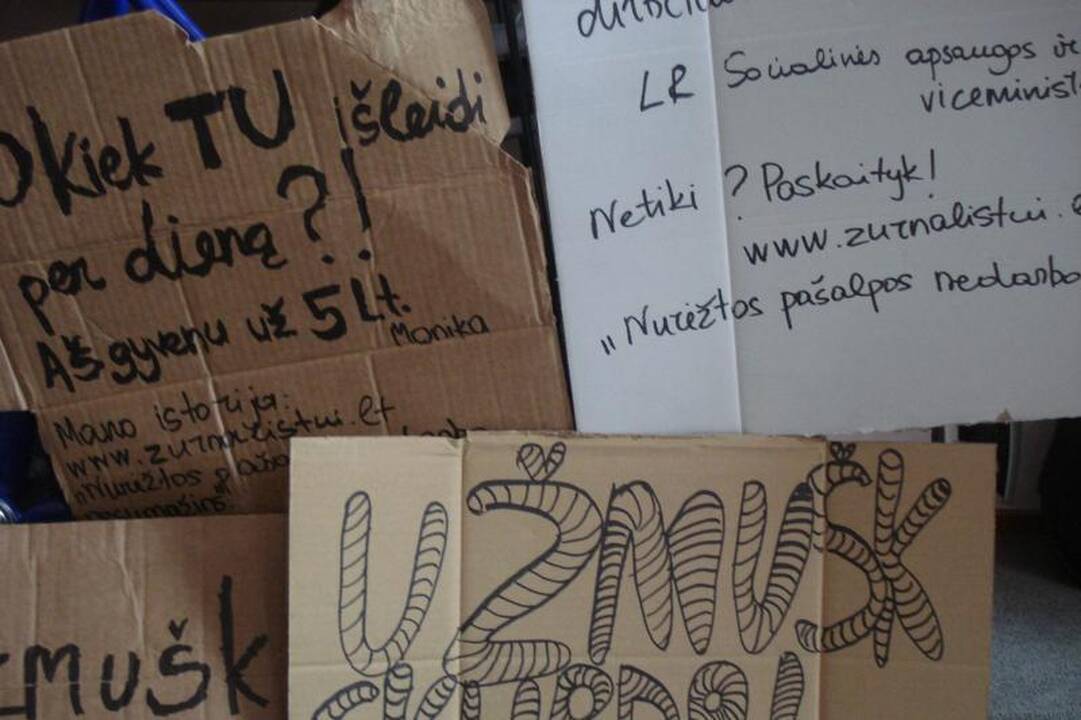 Kiek TU išleidi
per dieną?!
Aš gyvenu už 5 Lt.
Monika
Mano istorija:
www.zurnalistui.lt
"Nurėžtos
LR Socialinės apsaugos ir
viceminist
Netiki? Paskaityk!
www.zurnalistui.
„Nurėžtos pašalpos nedarbo
UŽMUŠK
zmušk